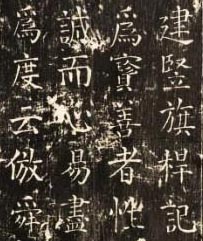 建竪旗桿記
為寳善者性
誠而心易盡
為度云倣舜